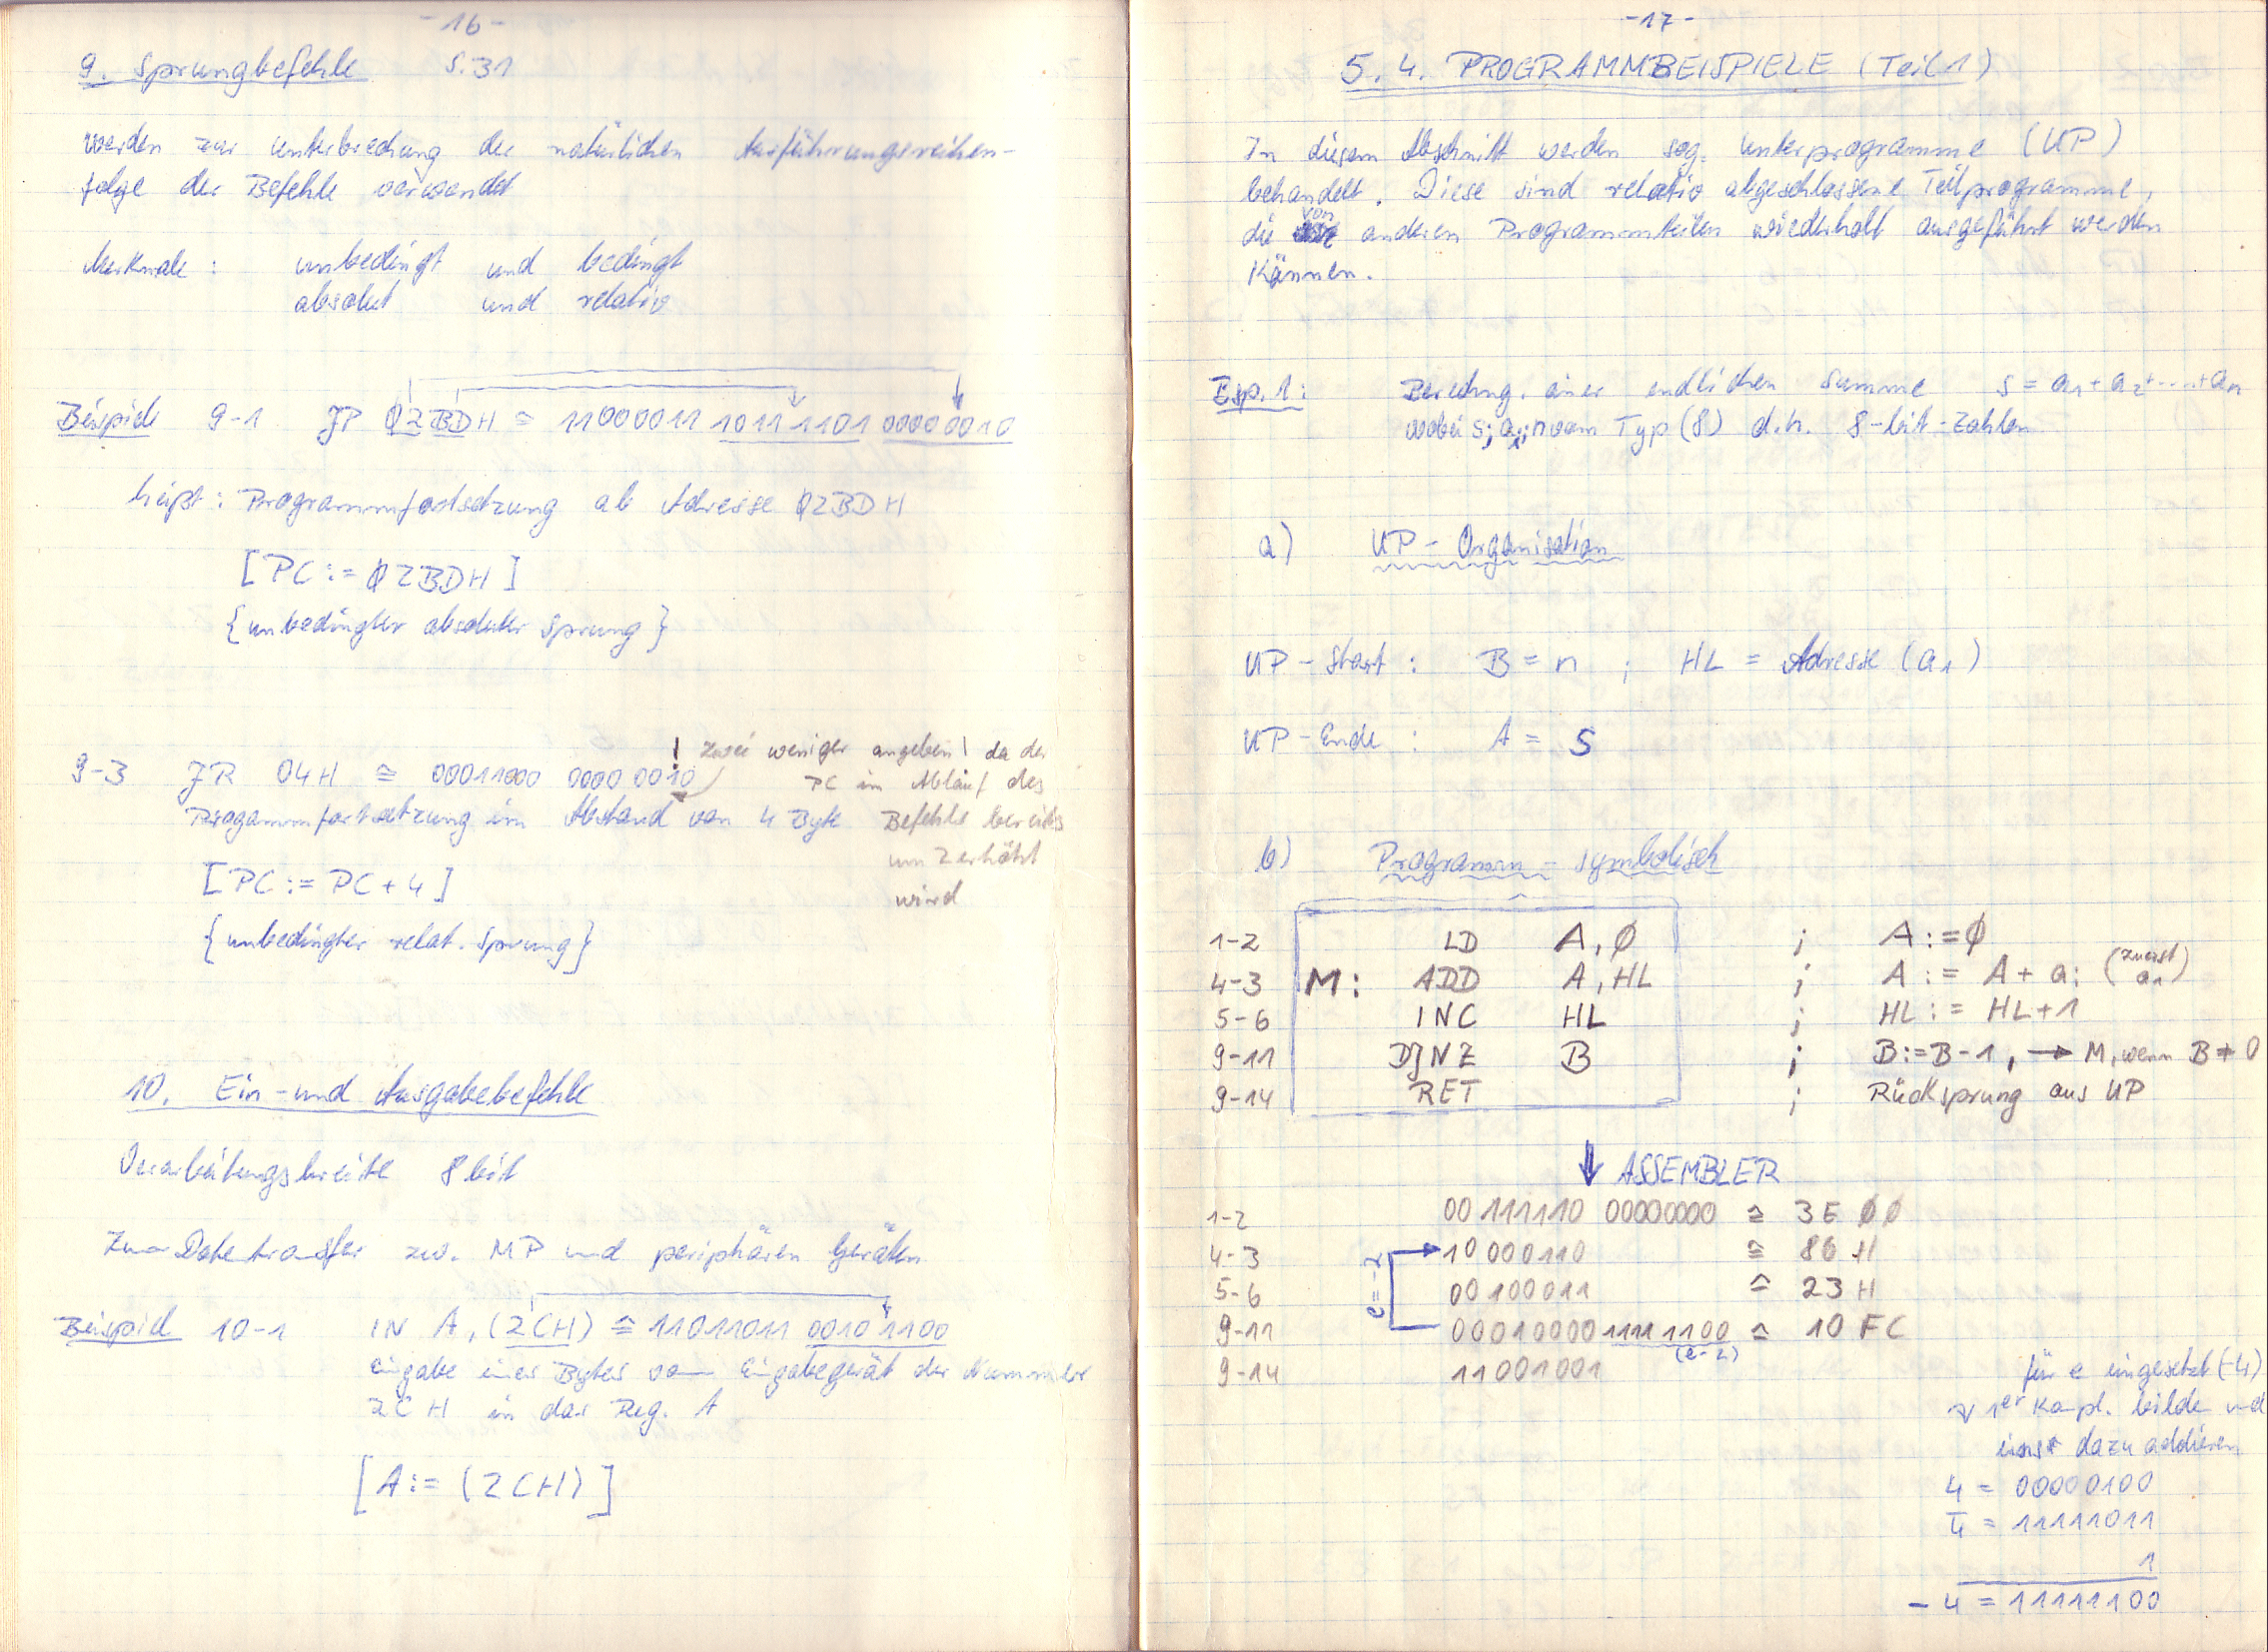 -16-
9. Sprungbefehle S.31
werden zur Unterbrechung der natürlichen Ausführungsreihen-
folge der Befehle verwendet
Merkmale : unbedingt und bedingt
absolut und relativ
Beispiele 9-1 JP 02BDH ≙ 11000011 10111101 00000010
heißt : Programmfortsetzung ab Adresse 02BDH
[PC := 02BDH]
{unbedingter absoluter Sprung}
9-3 JR 04H ≙ 00011000 00000010
! zwei weniger angeben! da der
PC im Ablauf des
Befehls bereits
um 2 erhöht
wird
Programmfortsetzung im Abstand von 4 Byte
[PC := PC + 4]
{unbedingter relat. Sprung}
10. Ein- und Ausgabebefehle
Verarbeitungsbreite 8 bit
Zum Datentransfer zw. MP und periphären Geräten
Beispiel 10-1 IN A, (2CH) ≙ 11011011 00101100
Eingabe eines Bytes vom Eingabegerät der Nummer
2CH in das Reg. A
[A := (2CH)]
-17-
5.4. PROGRAMMBEISPIELE (Teil 1)
In diesem Abschnitt werden sog. Unterprogramme (UP)
behandelt. Diese sind relativ abgeschlossene Teilprogramme,
die von anderen Programmteilen wiederholt ausgeführt werden
können.
Bsp. 1: Berechng. einer endlichen Summe s = a1 + a2 + .... + an
wobei s; ai; n vom Typ (8) d.h. 8-bit-Zahlen
a) UP-Organisation
UP-Start : B = n ; HL = Adresse (a1)
UP-Ende : A = S
b) Programm - symbolisch
1-2 LD A, Ø ; A := Ø
4-3 M: ADD A, HL ; A := A + ai (zuerst a1)
5-6 INC HL ; HL := HL+1
9-11 DJNZ B ; B := B-1, → M, wenn B ≠ 0
9-14 RET ; Rücksprung aus UP
↓ ASSEMBLER
1-2 00111110 00000000 ≙ 3E ØØ
4-3 10000110 ≙ 86 H
5-6 00100011 ≙ 23 H
9-11 00010000 11111100 ≙ 10 FC
e=-2
(e-2)
9-14 11001001
für e eingesetzt (-4)
1er Kompl. bilden und
eins dazu addieren
4 = 00000100
4̅ = 11111011
1
-4 = 11111100